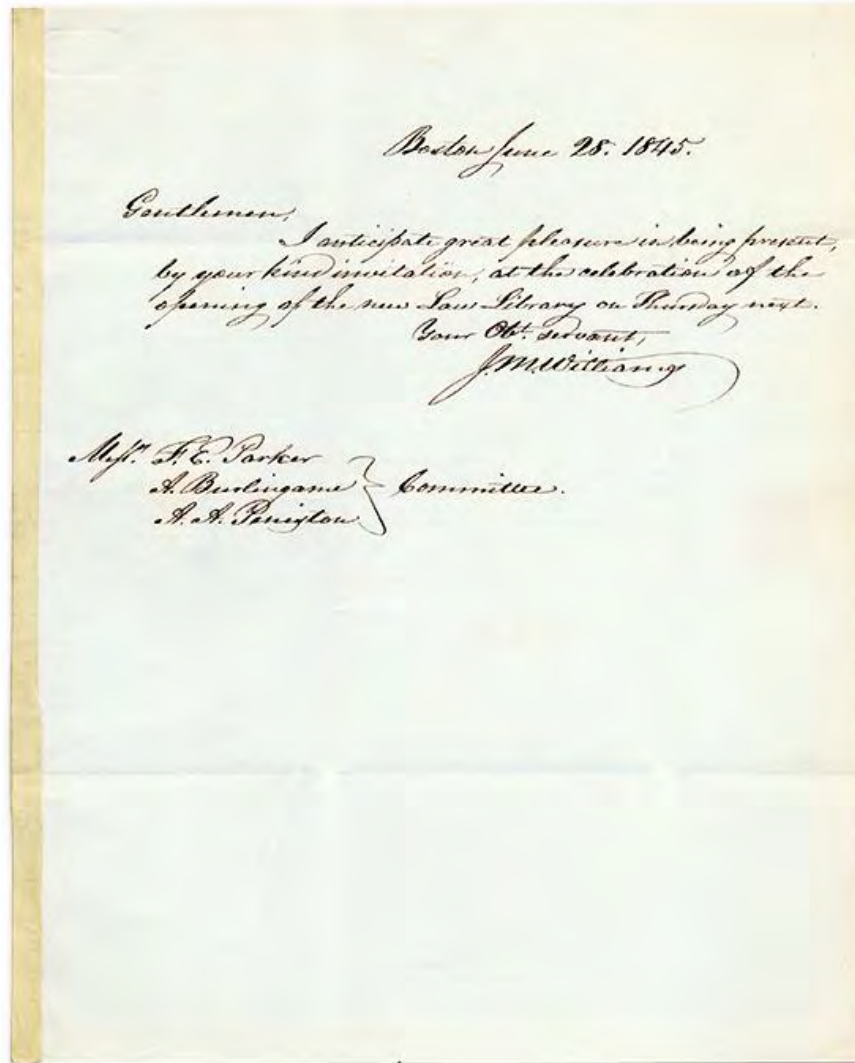 Boston June 28. 1845.
Gentlemen,
I anticipate great pleasure in being present,
by your kind invitation, at the celebration of the
opening of the new Law Library on Thursday next.
Your Obt. servant,
J. M. Williams
Messrs. F. E. Parker
A. Burlingame } Committee.
A. A.